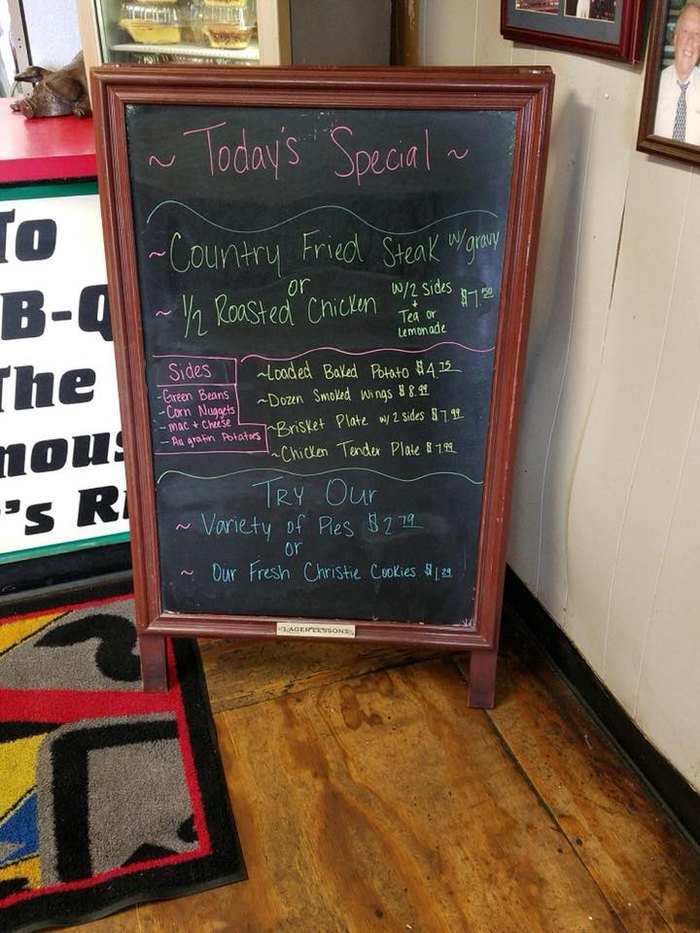 ~ Today's Special ~
~ Country Fried Steak w/gravy
or
~ 1/2 Roasted Chicken w/2 sides + Tea or Lemonade $7.50
Sides
- Green Beans
- Corn Nuggets
- mac + cheese
- Au gratin Potatoes
~Loaded Baked Potato $4.75
~Dozen Smoked Wings $8.99
~Brisket Plate w/2 sides $7.99
~Chicken Tender Plate $7.99
Try Our
~ Variety of Pies $2.79
or
~ Our Fresh Christie Cookies $1.29
LAGER LESSONS
To
B-Q
The
mous
's R